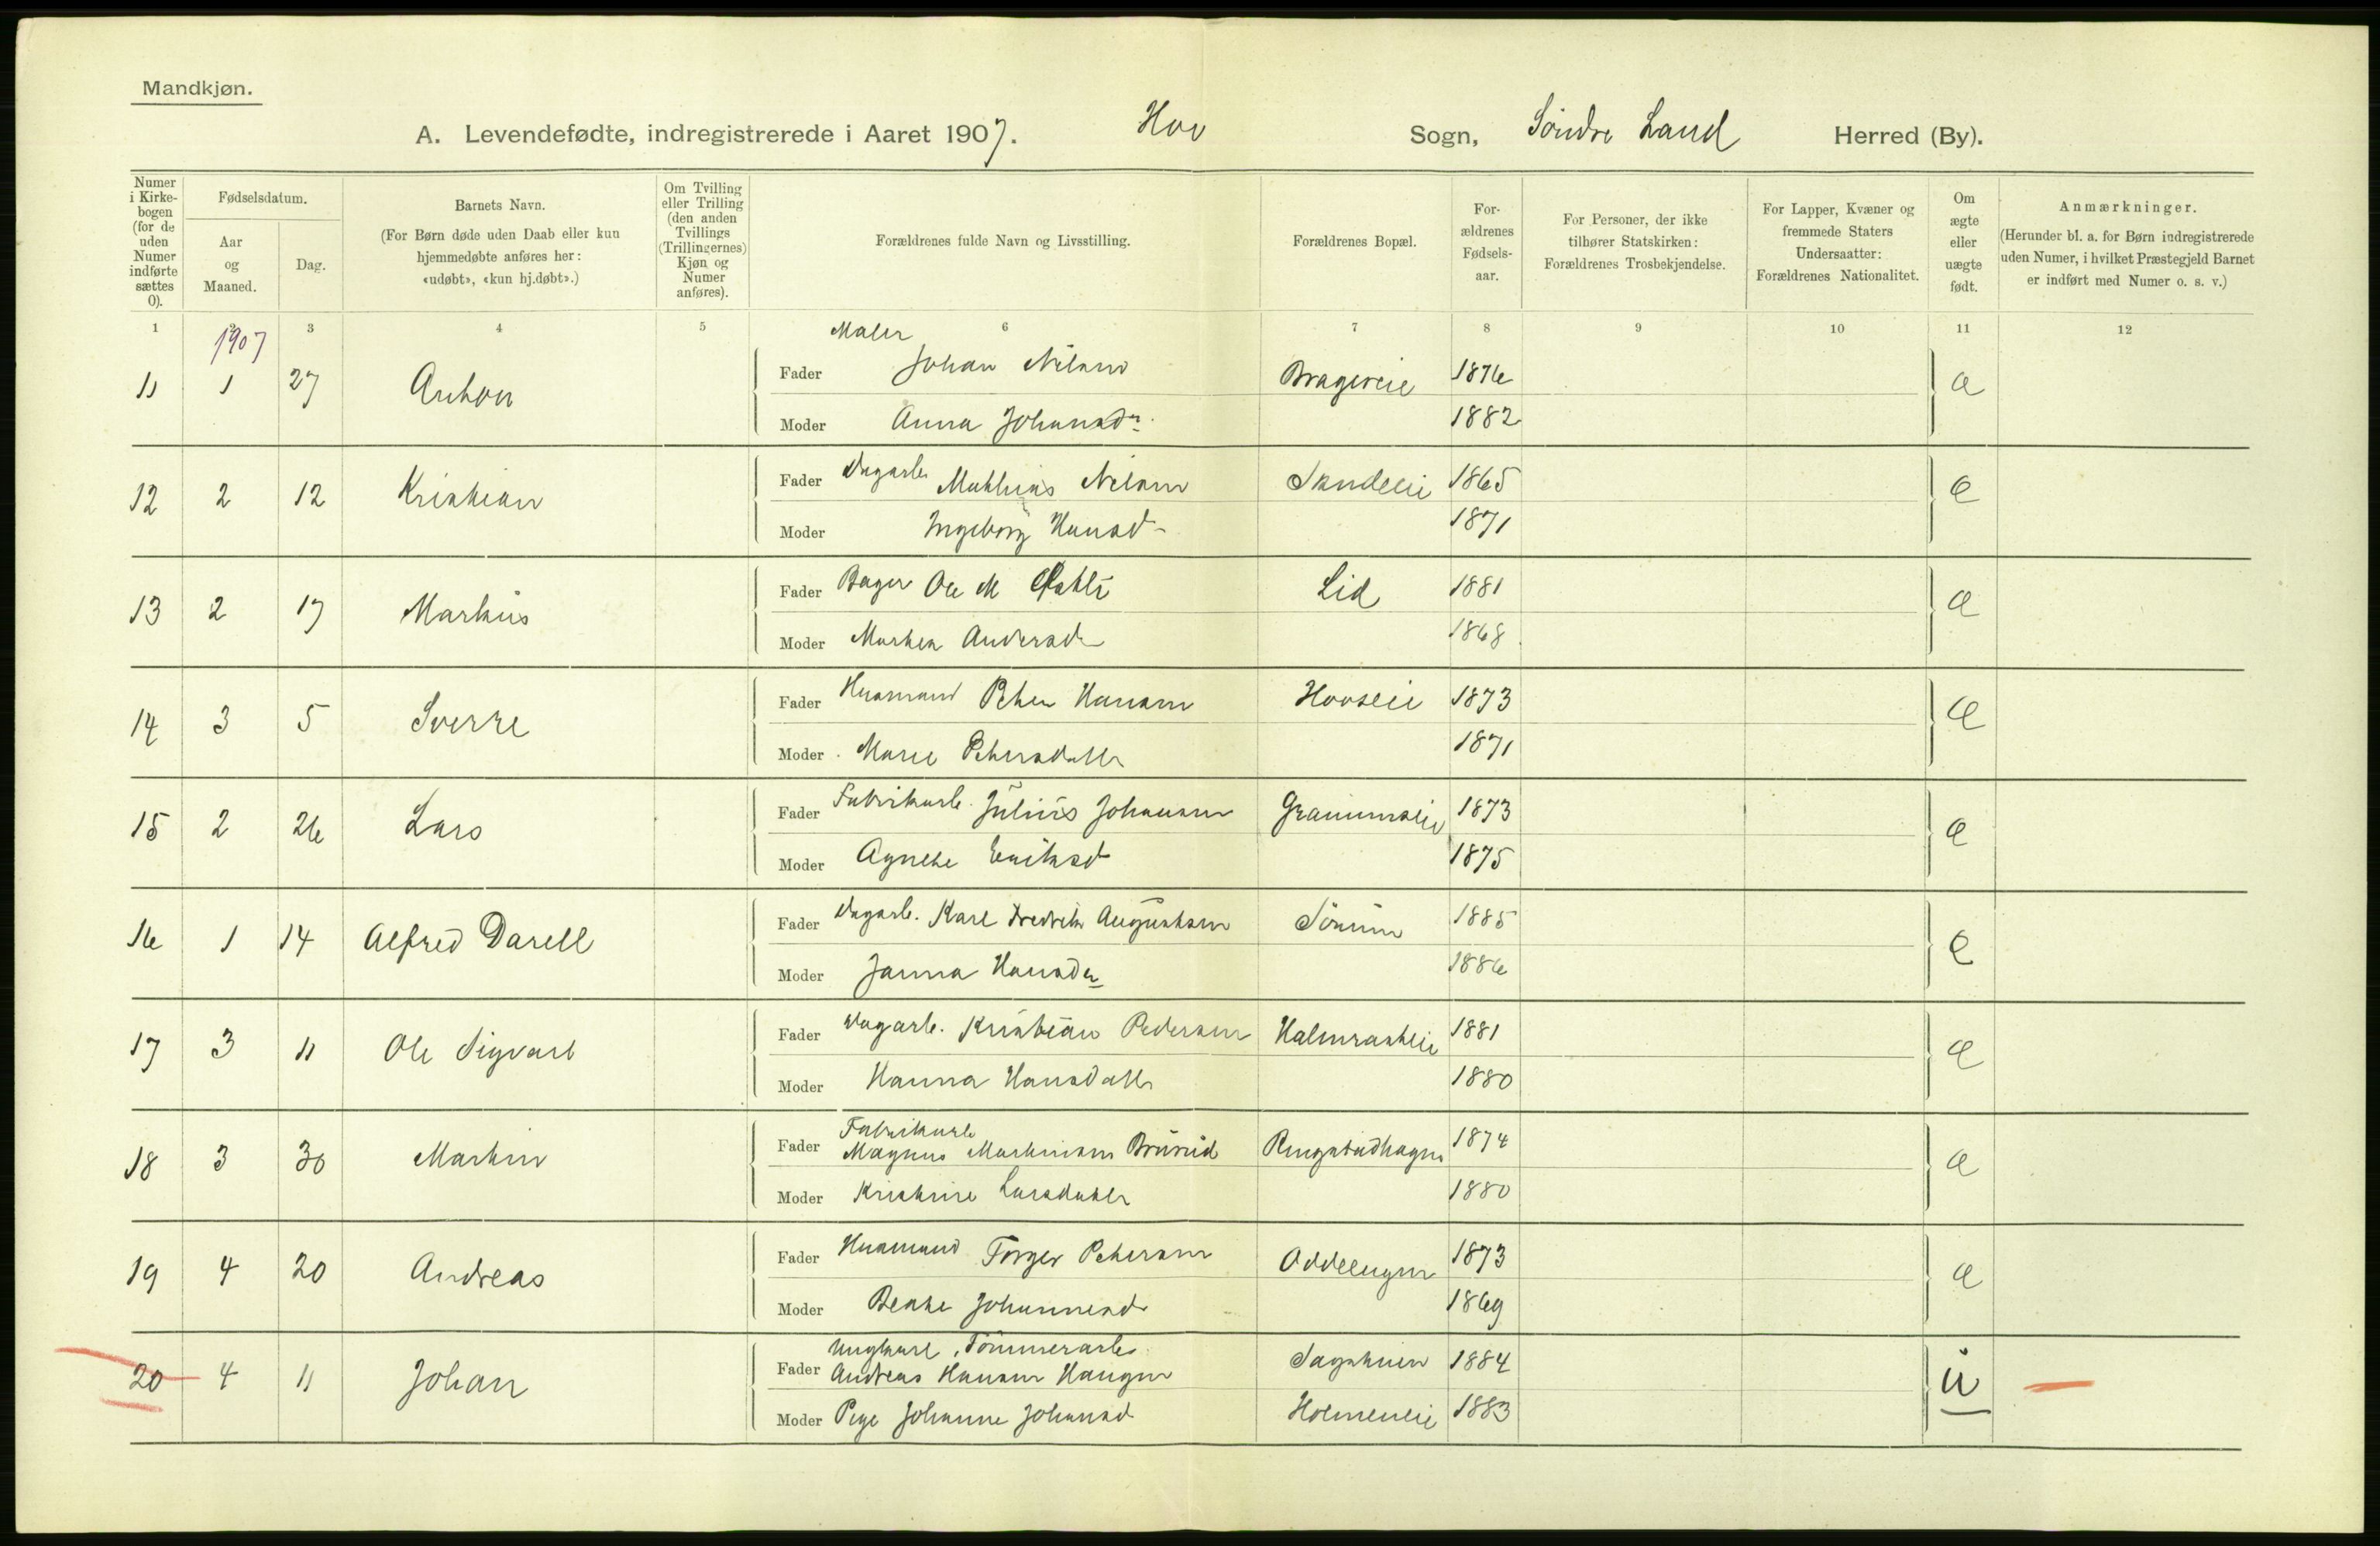 Mandkjøn.
A. Levendefødte, indregistrerede i Aaret 1907. Hov Sogn, Söndre Land Herred (By).
Numer i Kirke-bogen (for de uden Numer indførte sættes 0).
Fødselsdatum.
Aar og Maaned.
Dag.
Barnets Navn.
(For Børn døde uden Daab eller kun hjemmedøbte anføres her: «udøbt», «kun hj.døbt».)
Om Tvilling eller Trilling (den anden Tvillings (Trillingernes) Kjøn og Numer anføres).
Forældrenes fulde Navn og Livsstilling.
Forældrenes Bopæl.
For-ældrenes Fødsels-aar.
For Personer, der ikke tilhører Statskirken: Forældrenes Trosbekjendelse.
For Lapper, Kvæner og fremmede Staters Undersaatter: Forældrenes Nationalitet.
Om ægte eller uægte født.
Anmærkninger.
(Herunder bl. a. for Børn indregistrerede uden Numer, i hvilket Præstegjeld Barnet er indført med Numer o. s. v.)
1 2 3 4 5 6 7 8 9 10 11 12
1907
Maler
11 1 27 Anton Fader Johan Nilsen 1876 æ
Moder Anna Johansdr. 1882
12 2 12 Kristian Fader Dagarb. Mathias Nilsen 1865 æ
Moder Ingeborg Hansd 1871
13 2 17 Markus Fader Bager Ole M Lid 1881 æ
Moder Marthea Andersd 1868
14 3 5 Sverre Fader Husmand Peter Hansen Hovseie 1873 æ
Moder Marie Petersdatter 1871
15 2 26 Lars Fader Fabrikarb. Julius Johansen 1873 æ
Moder Agnethe Eriksd 1875
16 1 14 Alfred Darell Fader Dagarb. Karl Fredrik Augustsen 1885 æ
Moder Janna Hansdr 1886
17 3 11 Ole Sigvart Fader Dagarb. Kristian Pedersen 1881 æ
Moder Hanna Hansdatter 1880
Fabrikarb
18 3 30 Martin Fader Magnus Martinsen Ringstadhagen 1874 æ
Moder Kristine Larsdatter 1880
19 4 20 Andreas Fader Husmand Torger Petersen Oddelengen 1873 æ
Moder Beathe Johannesd 1869
Ungkarl, Tömmerarb.
20 4 11 Johan Fader Andreas Hansen Haugen Sagstuen 1884 u
Moder Pige Johanne Johansd Holmeneie 1883